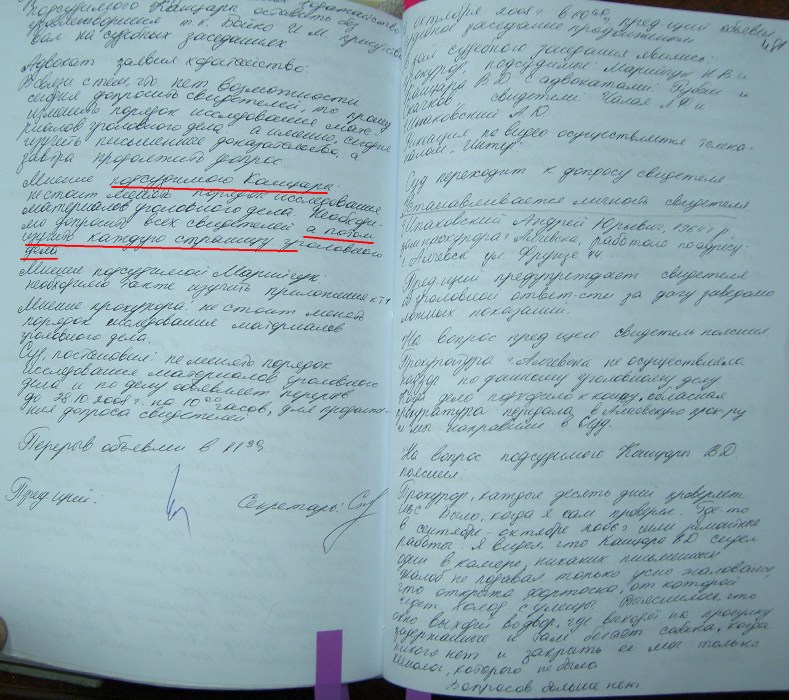 подсудимого Кащары оставить без
т.к. Бойко И.М. присутство
вал на судебных заседаниях
Адвокат заявил ходатайство:
В связи с тем, что нет возможности
сегодня допросить свидетелей, то прошу
изменить порядок исследования мате-
риалов уголовного дела, а именно, сегодня
изучить письменные доказательства, а
завтра продолжить допрос.
Мнение подсудимого Кащары:
не стоит менять порядок исследования
материалов уголовного дела. Необходи-
мо допросить всех свидетелей, а потом
изучить каждую страницу уголовного
дела
Мнение подсудимой Марийчук:
необходимо также изучить приложение к т.1
Мнение прокурора: не стоит менять
порядок исследования материалов
уголовного дела.
Суд постановил: не менять порядок
исследования материалов уголовного
дела и по делу объявляет перерыв
до 28.10.2008 г. на 10 00 часов, для продолже-
ния допроса свидетелей
Перерыв объявлен в
Пред-щий: Секретарь:
октября 2008 г в 10 00 пред-щий объявил
судебное заседание продолженным
В зал судебного заседания явились:
прокурор, подсудимые: Марийчук Н.В. и
Кащара В.Д. с адвокатами: и
свидетели: Чалая Л.Ф. и
Шпаковский А.Ю.
Фиксация по видео осуществляется телека-
налом „Интер"
Суд переходит к допросу свидетеля
Устанавливается личность свидетеля
Шпаковский Андрей Юрьевич,
зам. прокурора г. Алчевска, работаю по адресу
г. Алчевск ул. Фрунзе
Пред-щий предупреждает свидетеля
об уголовной ответ-сти за дачу заведомо
ложных показаний.
На вопрос пред-щего свидетель пояснил
Прокуратура г. Алчевска не осуществляла
надзор по данному уголовному делу
Когда дело подходило к концу, областная
прокуратура передала в Алчевскую прок-ру
и мы направили в Суд.
На вопрос подсудимого Кащары В.Д.
пояснил:
Прокурор, каждые десять дней проверяет
ИВС. Было, когда я сам проверял. Где-то
в сентябре - октябре шли ремонтные
работы. Я видел, что Кащара В.Д. сидел
один в камере, никаких письменных
жалоб не подавал, только устно жаловался,
что открыта форточка, от которой
идет холод с улицы. Выяснилось, что
окно выходит во двор, где выходят на прогулку
задержанные и там бегает собака, когда
никого нет и закрыть ее мог только
кинолог, которого не было
Вопросов больше нет